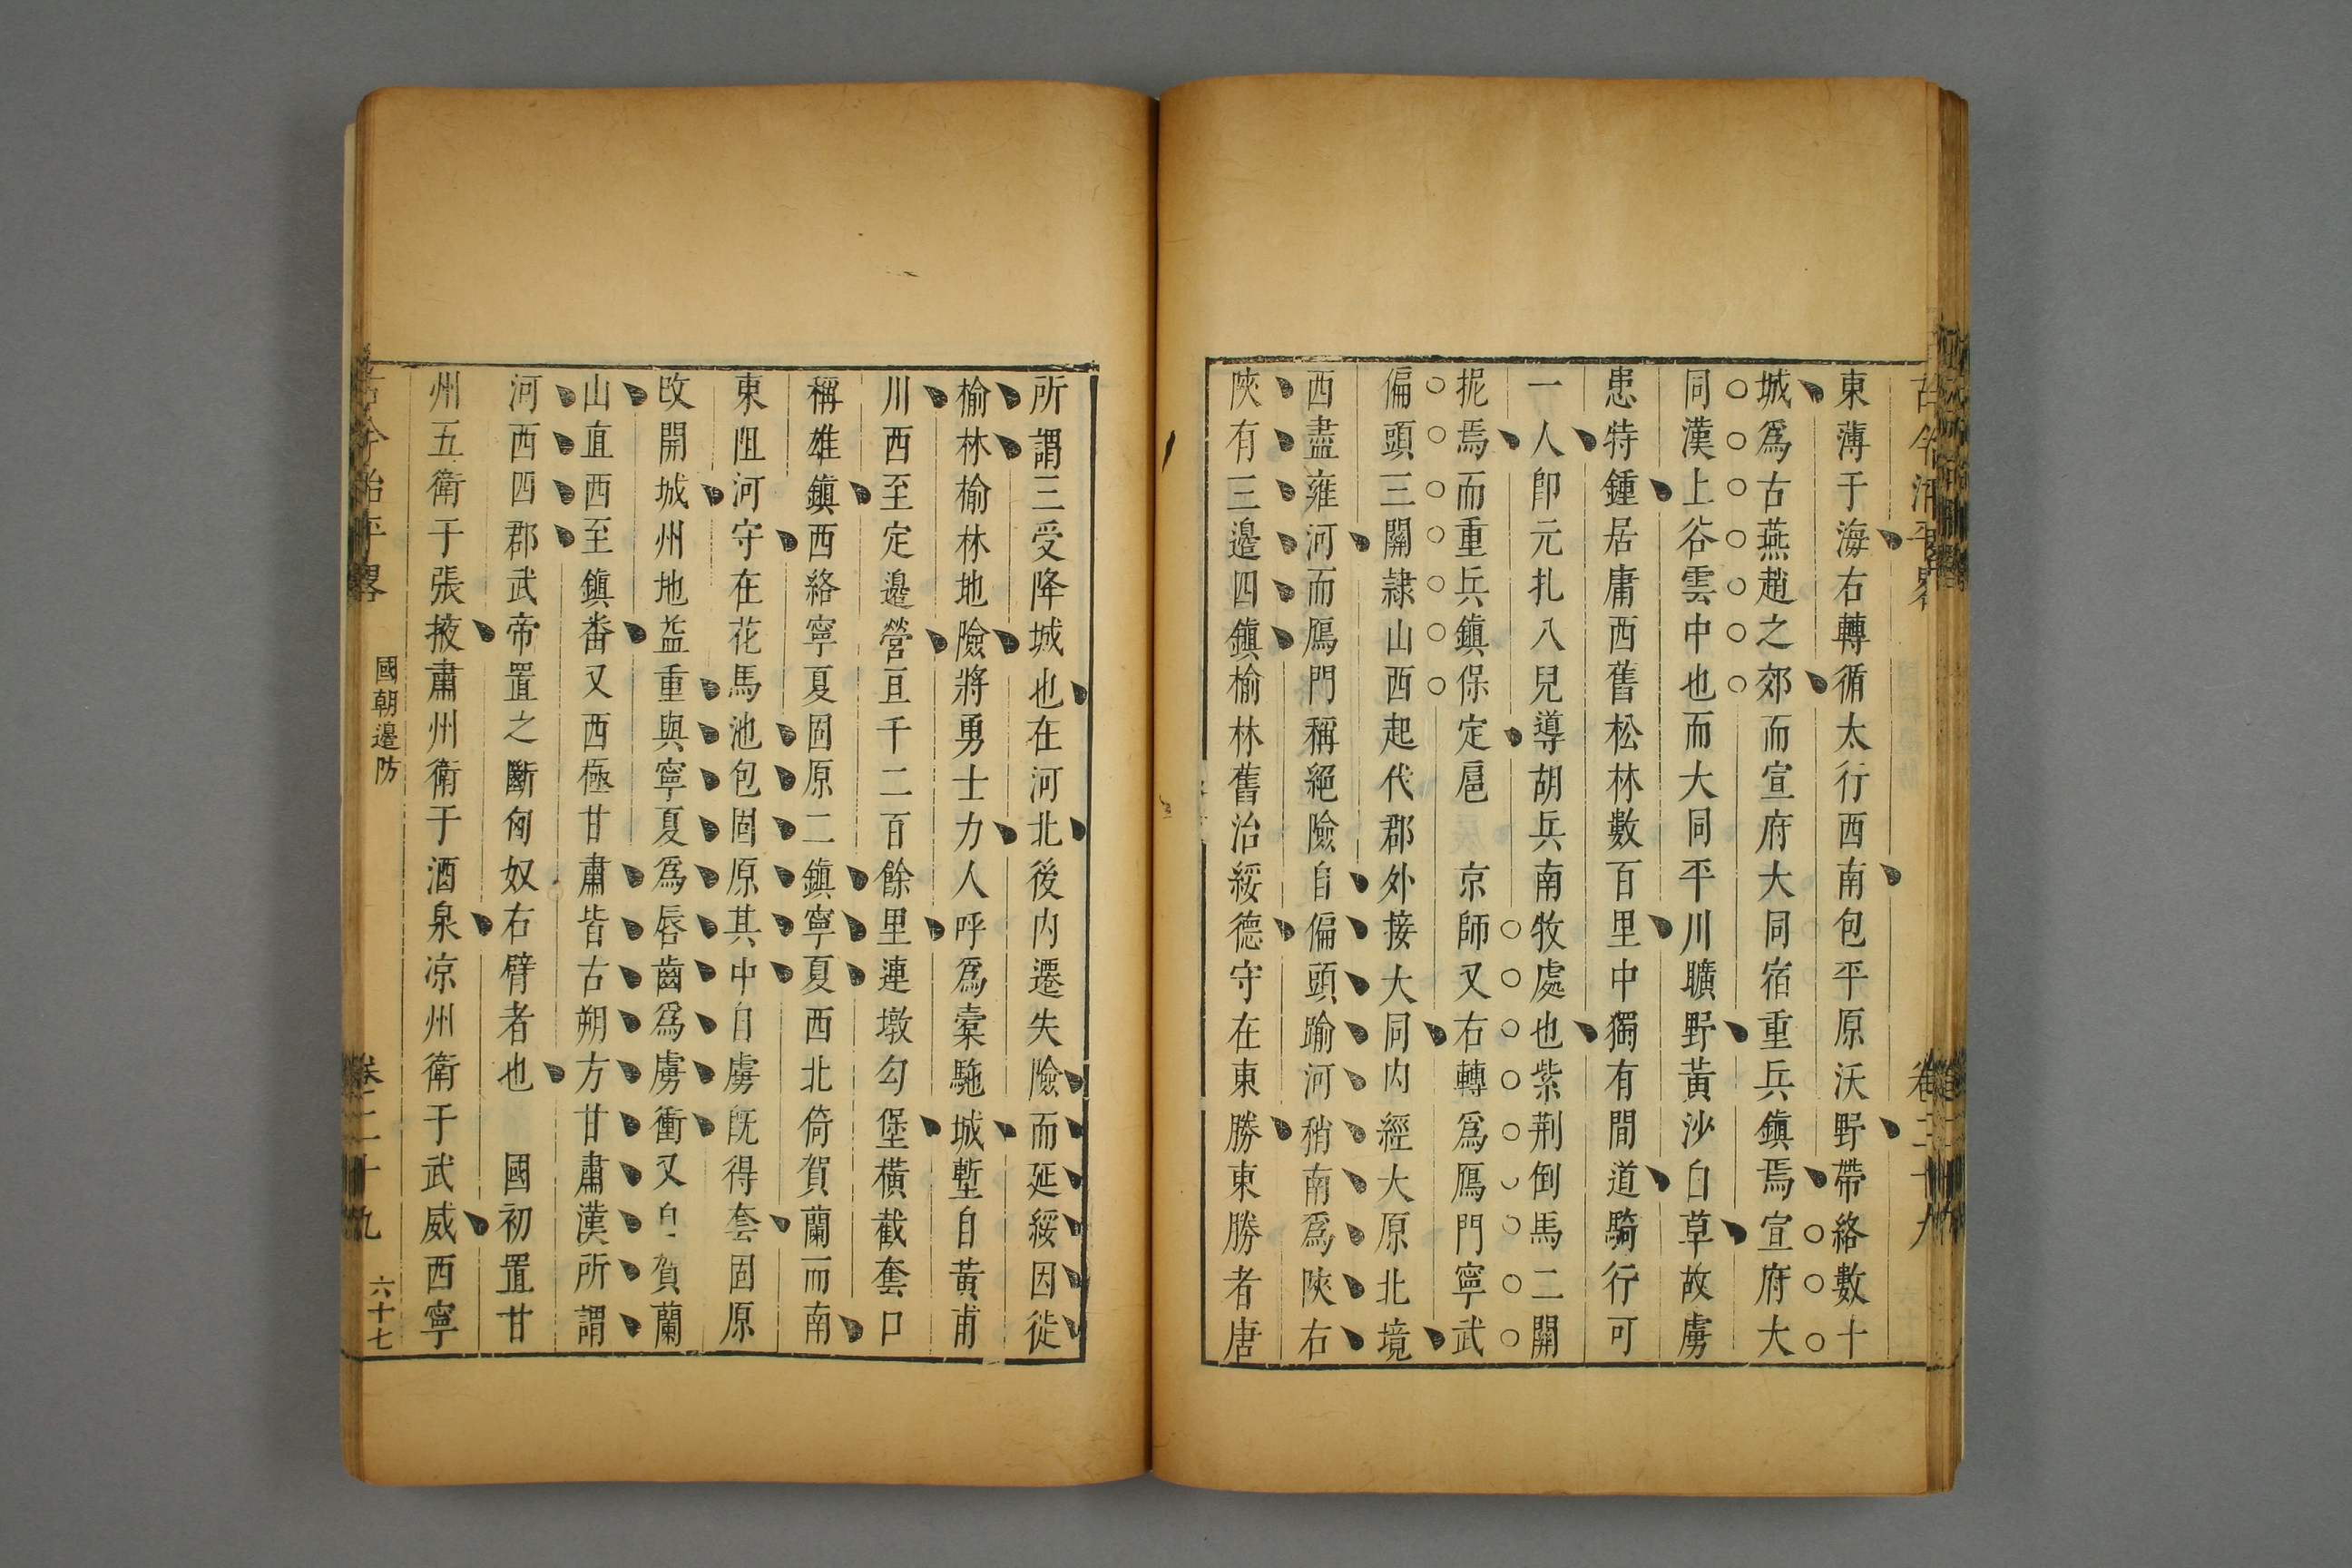 古今治平畧 卷二十九
東薄于海右轉循太行西南包平原沃野帶絡數十
城爲古燕趙之郊而宣府大同宿重兵鎮焉宣府大
同漢上谷雲中也而大同平川曠野黃沙白草故虜
患特鍾居庸西舊松林數百里中獨有間道騎行可
一人卽元扎八兒導胡兵南牧處也紫荆倒馬二關
扼焉而重兵鎮保定扈 京師又右轉爲鴈門寧武
偏頭三關隷山西起代郡外接大同内經大原北境
西盡雍河而鴈門稱絕險自偏頭踰河稍南爲陝右
陝有三邊四鎮榆林舊治綏德守在東勝東勝者唐
所謂三受降城也在河北後内遷失險而延綏因徙
榆林榆林地險將勇士力人呼爲橐駞城塹自黃甫
川西至定邊營亘千二百餘里連墩勾堡橫截套口
稱雄鎮西絡寧夏固原二鎮寧夏西北倚賀蘭而南
東阻河守在花馬池包固原其中自虜旣得套固原
改開城州地益重與寧夏爲唇齒爲虜衝又自賀蘭
山直西至鎮番又西極甘肅皆古朔方甘肅漢所謂
河西四郡武帝置之斷匈奴右臂者也 國初置甘
州五衛于張掖肅州衛于酒泉凉州衛于武威西寧
古今治平畧 國朝邊防 卷二十九 六十七